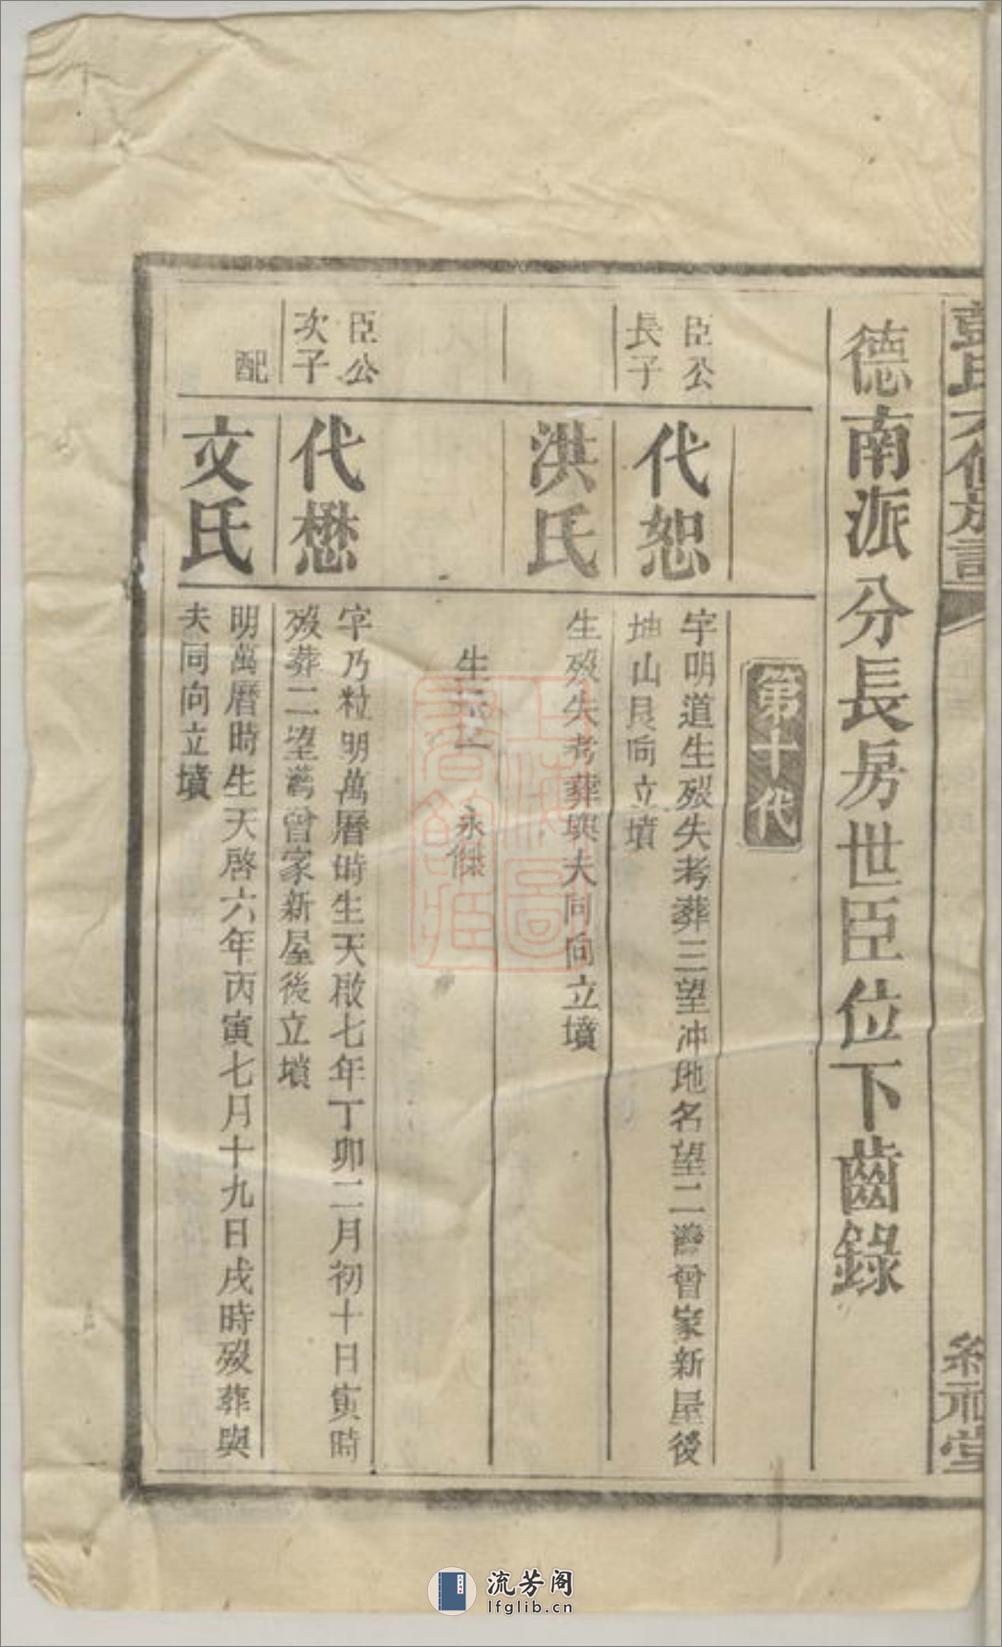 彭氏六修族譜
德南派分長房世臣位下齒錄
第十代
臣公
長子
代恕
字明道生歿失考葬三望冲地名望二灣曾家新屋後
坤山艮向立墳
洪氏
生歿失考葬與夫同向立墳
生子
永傑
臣公
次子
代懋
字乃粒明萬曆時生天啟七年丁卯二月初十日寅時
歿葬二望灣曾家新屋後立墳
配
文氏
明萬曆時生天啓六年丙寅七月十九日戌時歿葬與
夫同向立墳
上海圖
書館藏
流芳阁
lfglib.cn